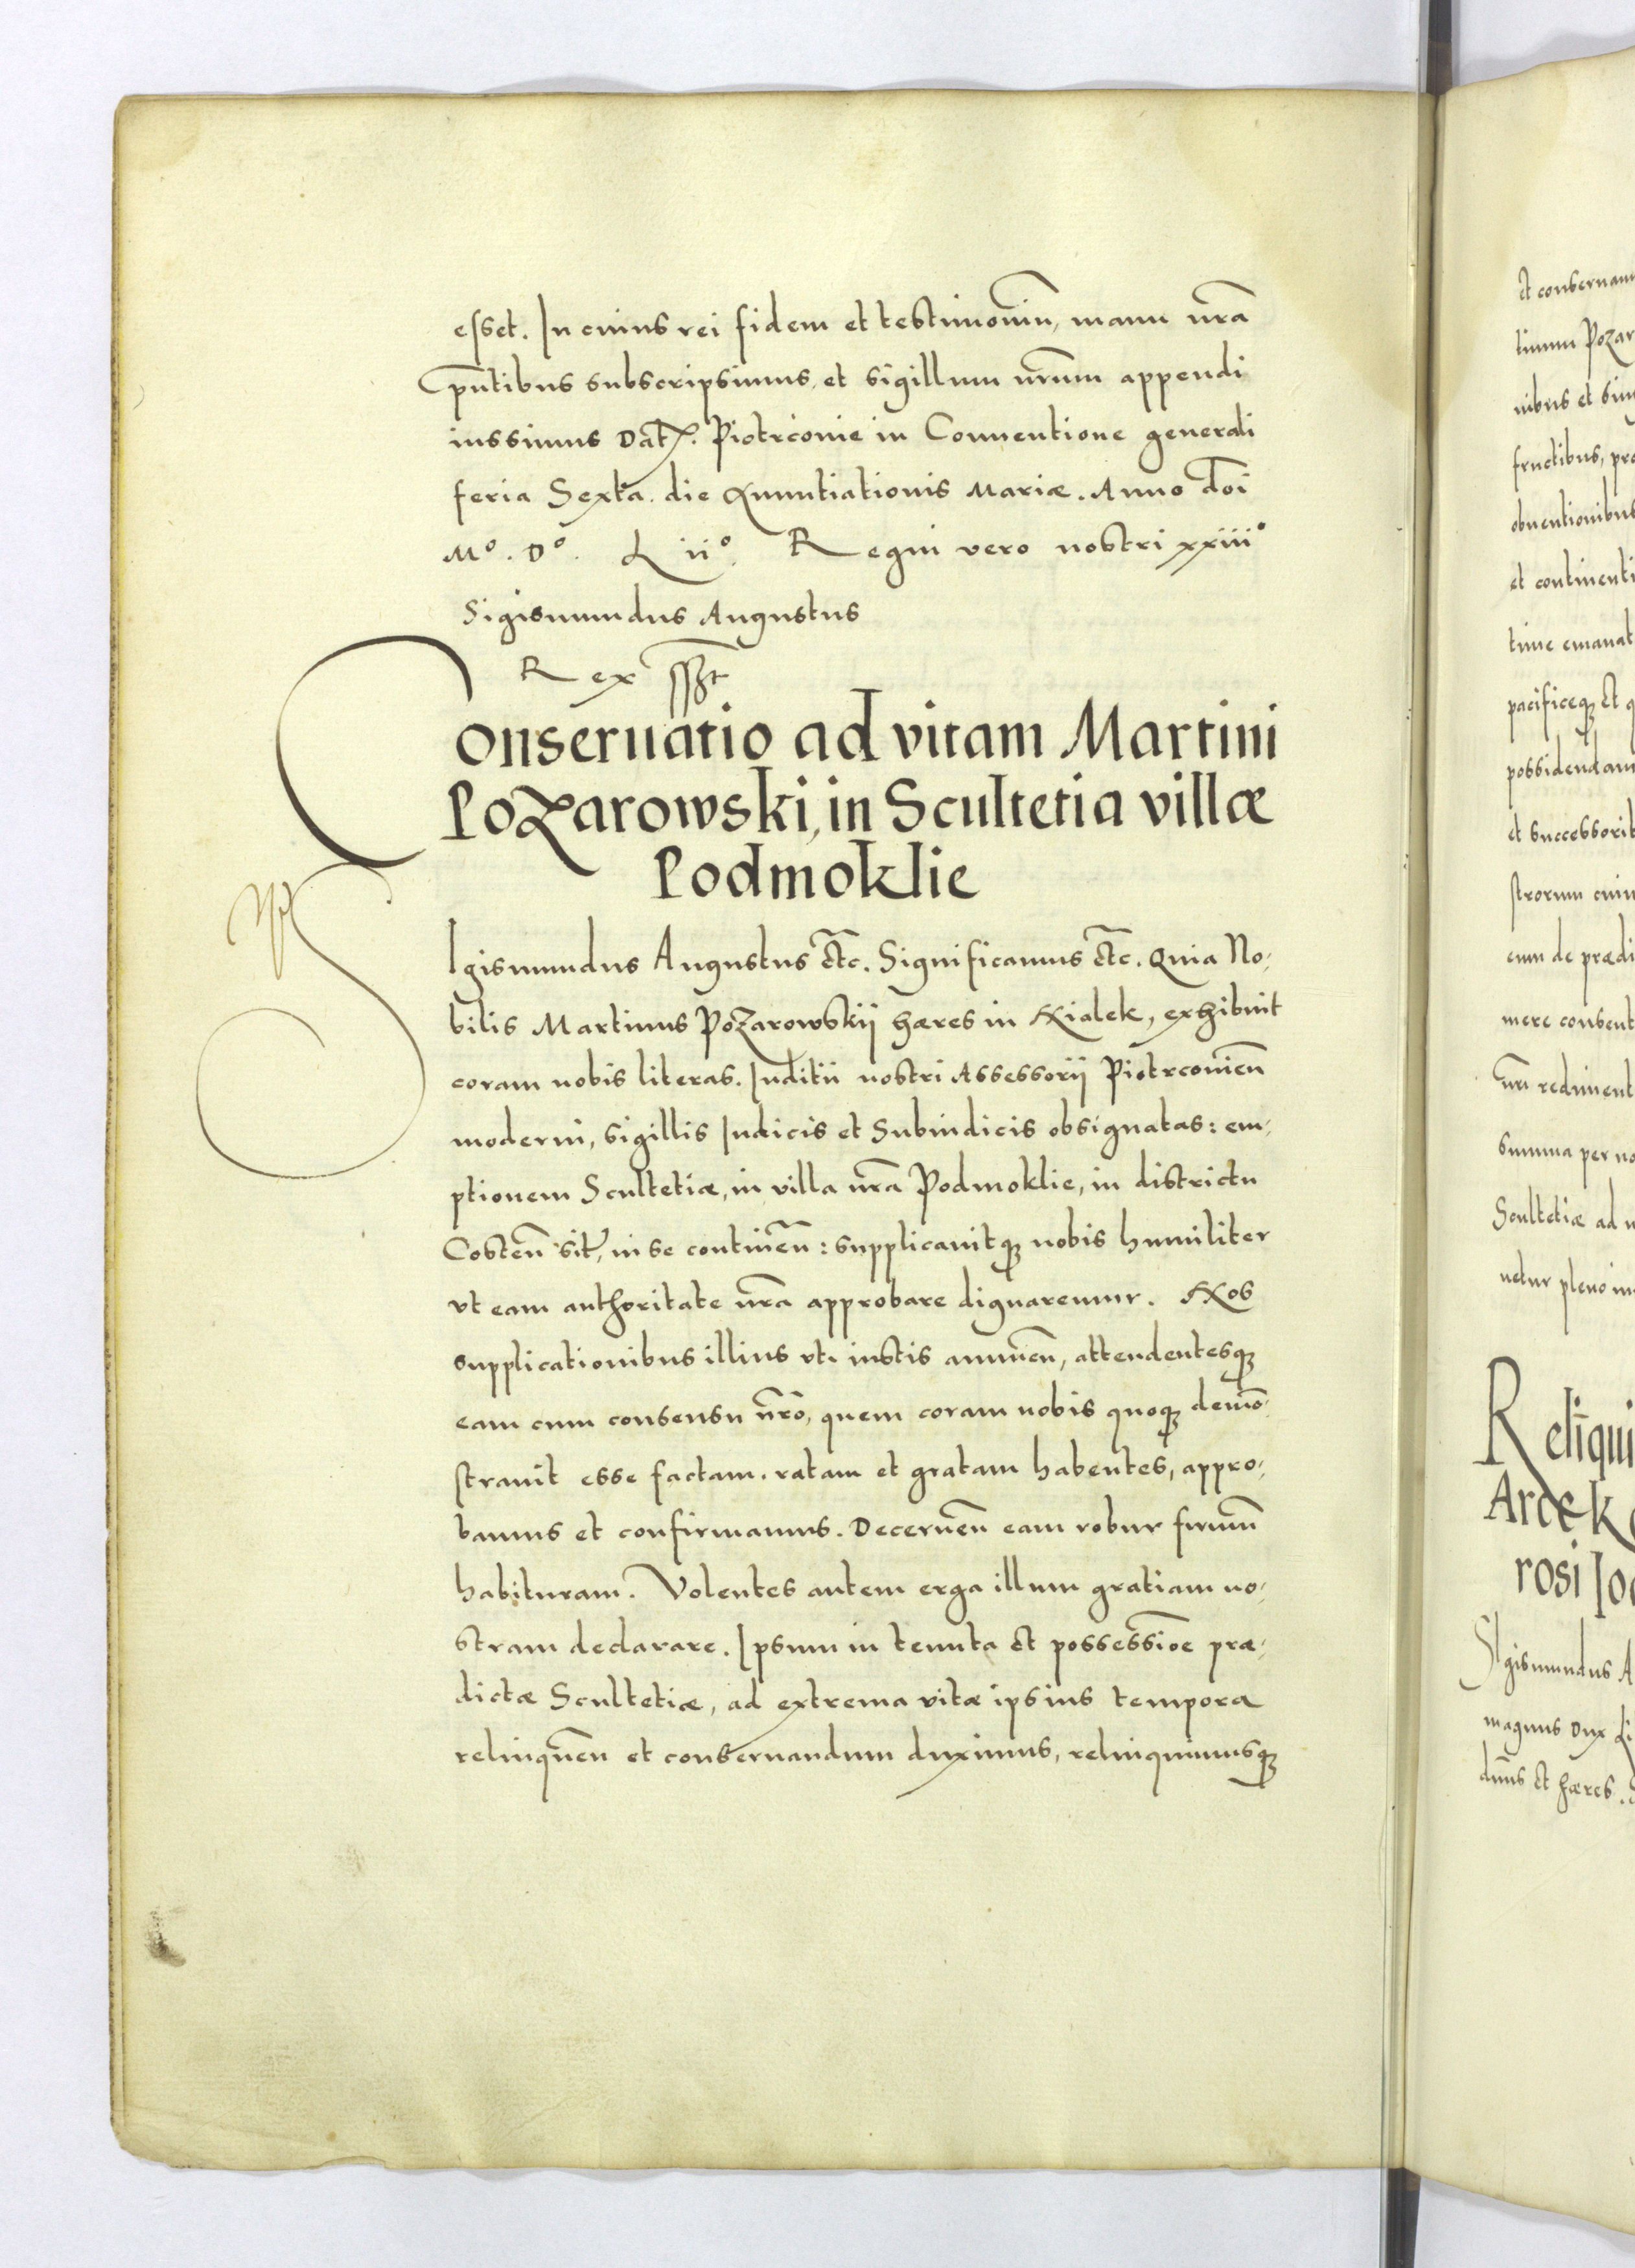 esset. In cuius rei fidem et testimoniũ, manu nr̃a
p̃ntibus subscripsimus, et sigillum nr̃um appendi
iussimus Dat̃. Piotrcouie in Conuentione generali
feria Sexta die Annuntiationis Mariæ. Anno Dñi
Mº. Dº. Liiº. Regni vero nostri xxiiiº
Sigismundus Augustus
Rex sszt
Conseruatio ad vitam Martini
Pozarowski, in Scultetia villæ
Podmoklie
SIgismundus Augustus etc̃. Significamus etc̃. Quia No-
bilis Martinus Pozarowskij hæres in Nialek, exhibuit
coram nobis literas. Juditii nostri Assessorij Piotrcouieñ
moderni, sigillis Judicis et Subiudicis obsignatas: em-
ptionem Scultetiæ, in villa nr̃a Podmoklie, in districtu
Costeñ sit̃, in se contineñ: supplicauitqꝫ nobis humiliter
vt eam authoritate nr̃a approbare dignaremur. Nos
supplicationibus illius vti iustis annueñ, attendentesqꝫ
eam cum consensu nr̃o, quem coram nobis quoqꝫ demõ-
strauit esse factam. ratam et gratam habentes, appro-
bamus et confirmamus. Decerneñ eam robur firmũ
habituram. Volentes autem erga illum gratiam no-
stram declarare. Ipsum in tenuta et possessiõe præ-
dictæ Scultetiæ, ad extrema vitæ ipsius tempora
relinqueñ et conseruandum duximus, relinquimusqꝫ
et conseruam
tinum Pozar
nibus et sing
fructibus, pro
obuentionibus
et continenti
time emanat
pacificeqꝫ et q
possidendam
et successorib
strorum cuiu
eum de prædi
mere consent
nr̃i rediment
summa per no
Scultetiæ ad
uetur pleno in
Reliqui
Arcek
rosi Jo
SIgismundus A
magnus Dux Li
dñus et hæres.